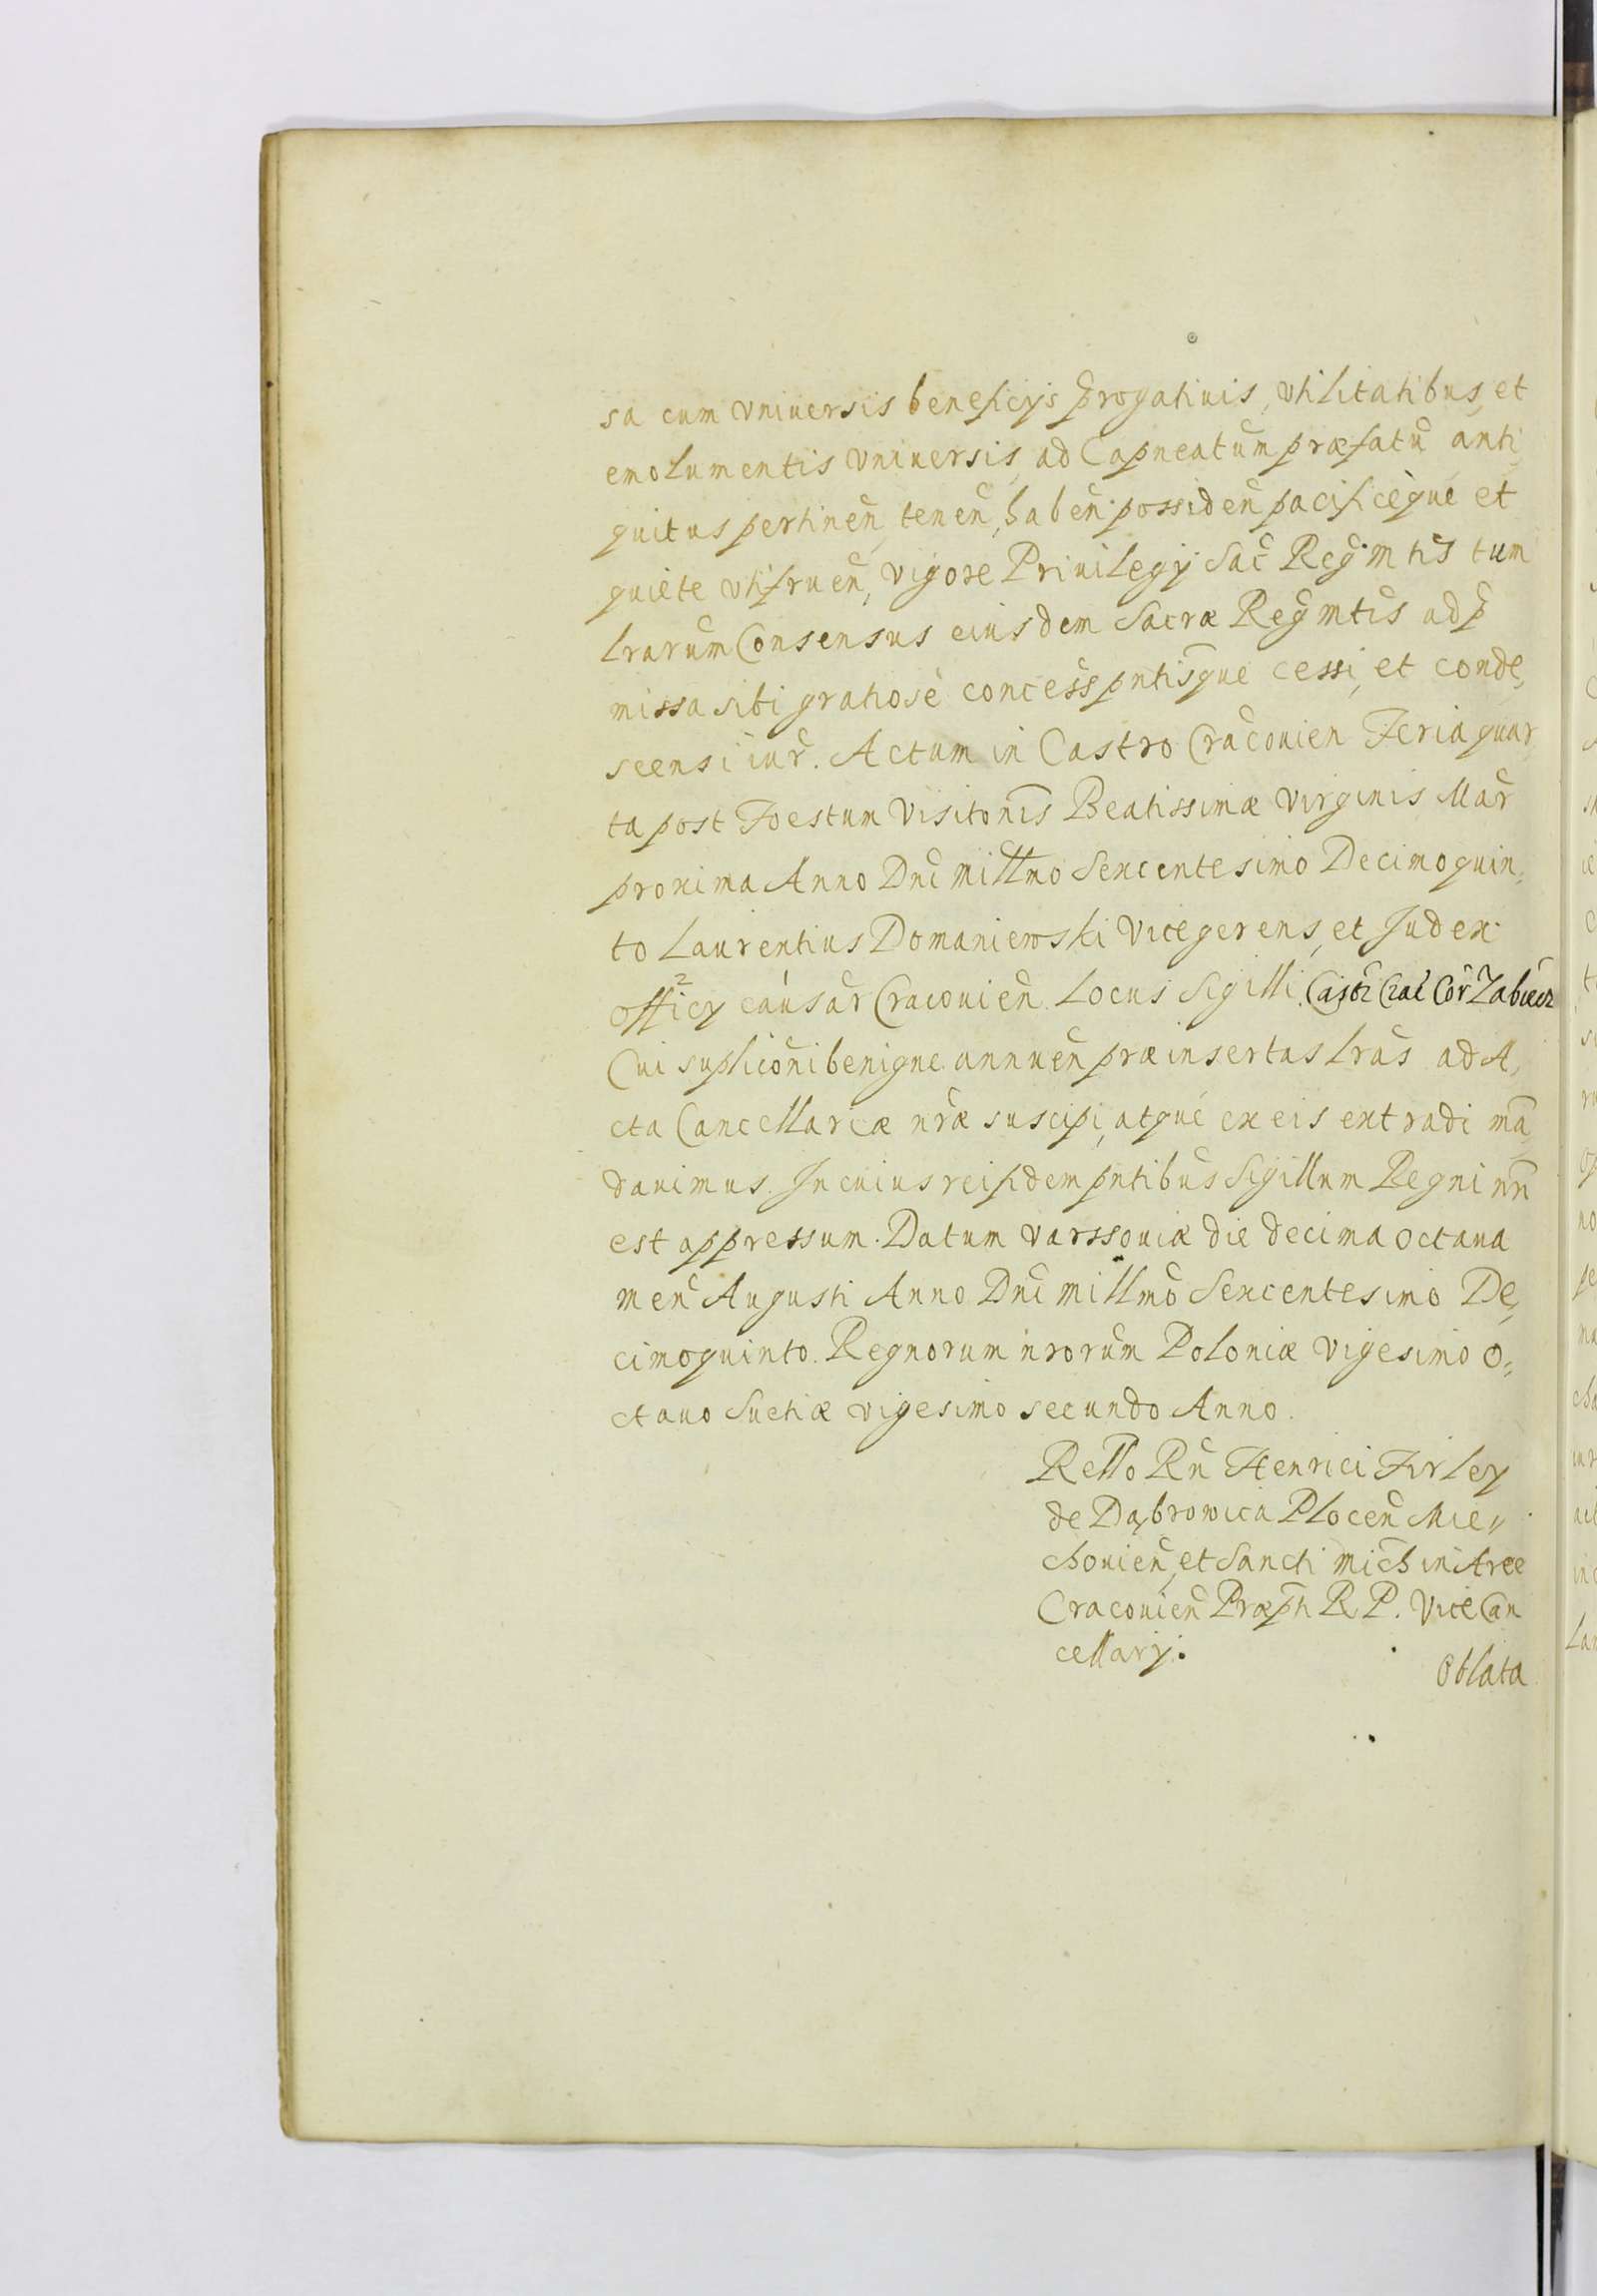 sa cum vniuersis beneficijs p̄rogatiuis, vtilitatibus, et
emolumentis vniuersis, ad Capneatum præfatū anti,
quitus pertineñ, teneñ, habeñ possideñ pacificèque et
quiète vtifrueñ, vigore Priuilegij Sac̃ Reg̃ Mtis tum
lrarum Consensus eiusdem Sacræ Reg̃ Mtis ad p̄
missa sibi gratiosè concess̃ pntisque cessi, et conde,
scensi iur̃. Actum in Castro Cracouien Feria quar,
ta post Foestum Visitonis Beatissimæ Virginis Mar̃
proxima Anno Dni Millmo Sexcentesimo Decimoquin,
to Laurentius Domaniewski Vicegerens, et Judex
officy causar̃ Cracouieñ. Locus Sigilli.
Cui suplicõni benigne annueñ præinsertas lras ad A,
cta Cancellariæ nræ suscipi, atqué ex eis extradi mã,
dauimus. In cuius rei fidem pntibus Sigillum Regni nr̃m
est appressum. Datum Varssouiæ die decima octaua
meñ Augusti Anno Dni Millmo Sexcentesimo De,
cimoquinto. Regnorum nrorum Poloniæ Vigesimo o,
ctauo Suetiæ vigesimo secundo Anno.
Rello Rñ Henrici Firley
de Dąbrowica Ploceñ Mie,,
chouieñ, et Sancti Mich in Arce
Cracouieñ Præpti R. P. ViceCan
cellarij.
Oblata